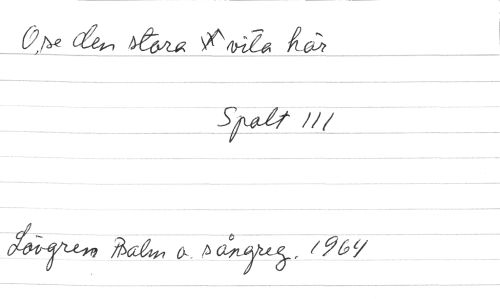 O, se den stora vita här
Spalt III
Lövgren Psalm o. sångreg. 1964